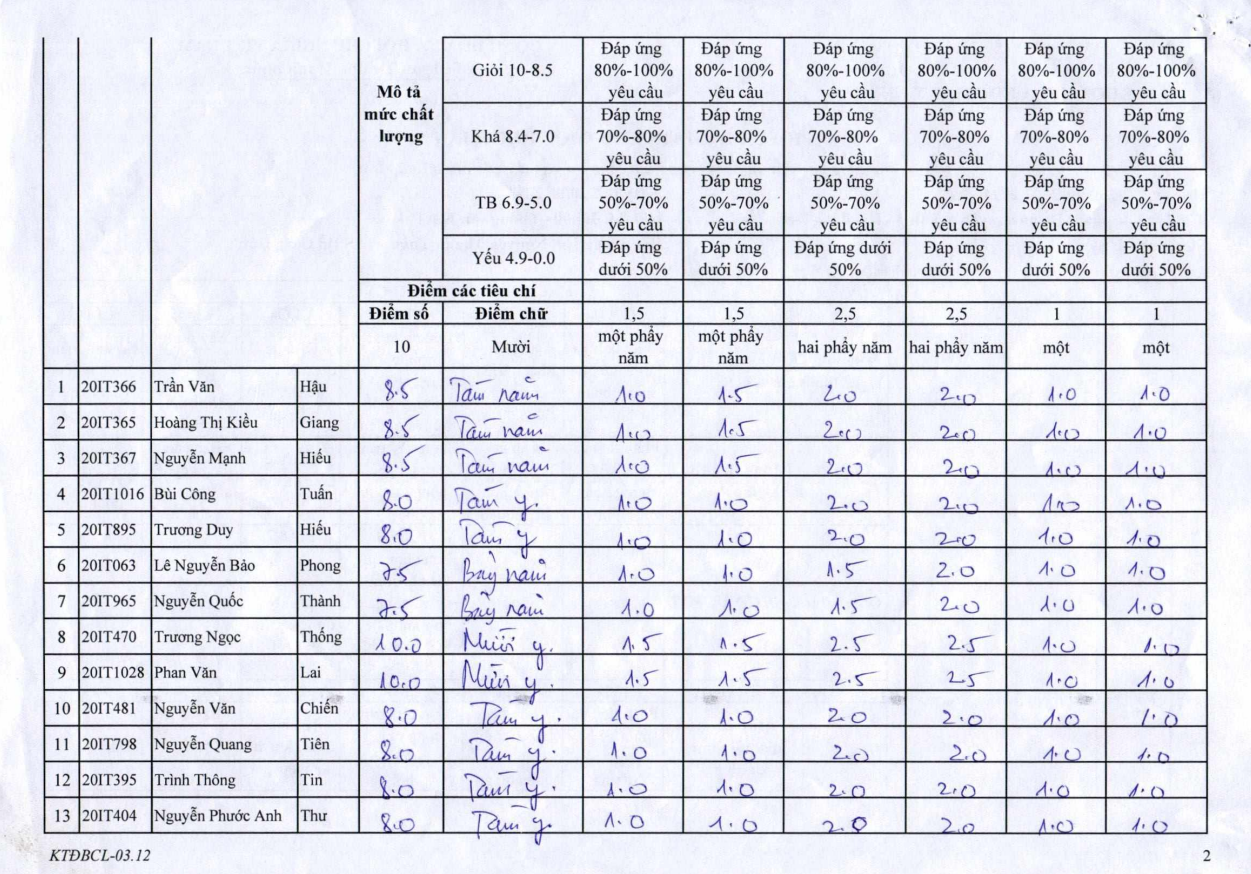 Mô tả mức chất lượng
Giỏi 10-8.5 Đáp ứng 80%-100% yêu cầu Đáp ứng 80%-100% yêu cầu Đáp ứng 80%-100% yêu cầu Đáp ứng 80%-100% yêu cầu Đáp ứng 80%-100% yêu cầu Đáp ứng 80%-100% yêu cầu
Khá 8.4-7.0 Đáp ứng 70%-80% yêu cầu Đáp ứng 70%-80% yêu cầu Đáp ứng 70%-80% yêu cầu Đáp ứng 70%-80% yêu cầu Đáp ứng 70%-80% yêu cầu Đáp ứng 70%-80% yêu cầu
TB 6.9-5.0 Đáp ứng 50%-70% yêu cầu Đáp ứng 50%-70% yêu cầu Đáp ứng 50%-70% yêu cầu Đáp ứng 50%-70% yêu cầu Đáp ứng 50%-70% yêu cầu Đáp ứng 50%-70% yêu cầu
Yếu 4.9-0.0 Đáp ứng dưới 50% Đáp ứng dưới 50% Đáp ứng dưới 50% Đáp ứng dưới 50% Đáp ứng dưới 50% Đáp ứng dưới 50%
Điểm các tiêu chí
Điểm số Điểm chữ 1,5 1,5 2,5 2,5 1 1
10 Mười một phẩy năm một phẩy năm hai phẩy năm hai phẩy năm một một
1 20IT366 Trần Văn Hậu 8.5 Tám năm 1.0 1.5 2.0 2.0 1.0 1.0
2 20IT365 Hoàng Thị Kiều Giang 8.5 Tám năm 1.0 1.5 2.0 2.0 1.0 1.0
3 20IT367 Nguyễn Mạnh Hiếu 8.5 Tám năm 1.0 1.5 2.0 2.0 1.0 1.0
4 20IT1016 Bùi Công Tuấn 8.0 Tám y. 1.0 1.0 2.0 2.0 1.0 1.0
5 20IT895 Trương Duy Hiếu 8.0 Tám y 1.0 1.0 2.0 2.0 1.0 1.0
6 20IT063 Lê Nguyễn Bảo Phong 7.5 Bảy năm 1.0 1.0 1.5 2.0 1.0 1.0
7 20IT965 Nguyễn Quốc Thành 7.5 Bảy năm 1.0 1.0 1.5 2.0 1.0 1.0
8 20IT470 Trương Ngọc Thống 10.0 Mười y. 1.5 1.5 2.5 2.5 1.0 1.0
9 20IT1028 Phan Văn Lai 10.0 Mười y 1.5 1.5 2.5 2.5 1.0 1.0
10 20IT481 Nguyễn Văn Chiến 8.0 Tám y. 1.0 1.0 2.0 2.0 1.0 1.0
11 20IT798 Nguyễn Quang Tiên 8.0 Tám y. 1.0 1.0 2.0 2.0 1.0 1.0
12 20IT395 Trình Thông Tin 8.0 Tám y. 1.0 1.0 2.0 2.0 1.0 1.0
13 20IT404 Nguyễn Phước Anh Thư 8.0 Tám y. 1.0 1.0 2.0 2.0 1.0 1.0
KTĐBCL-03.12 2